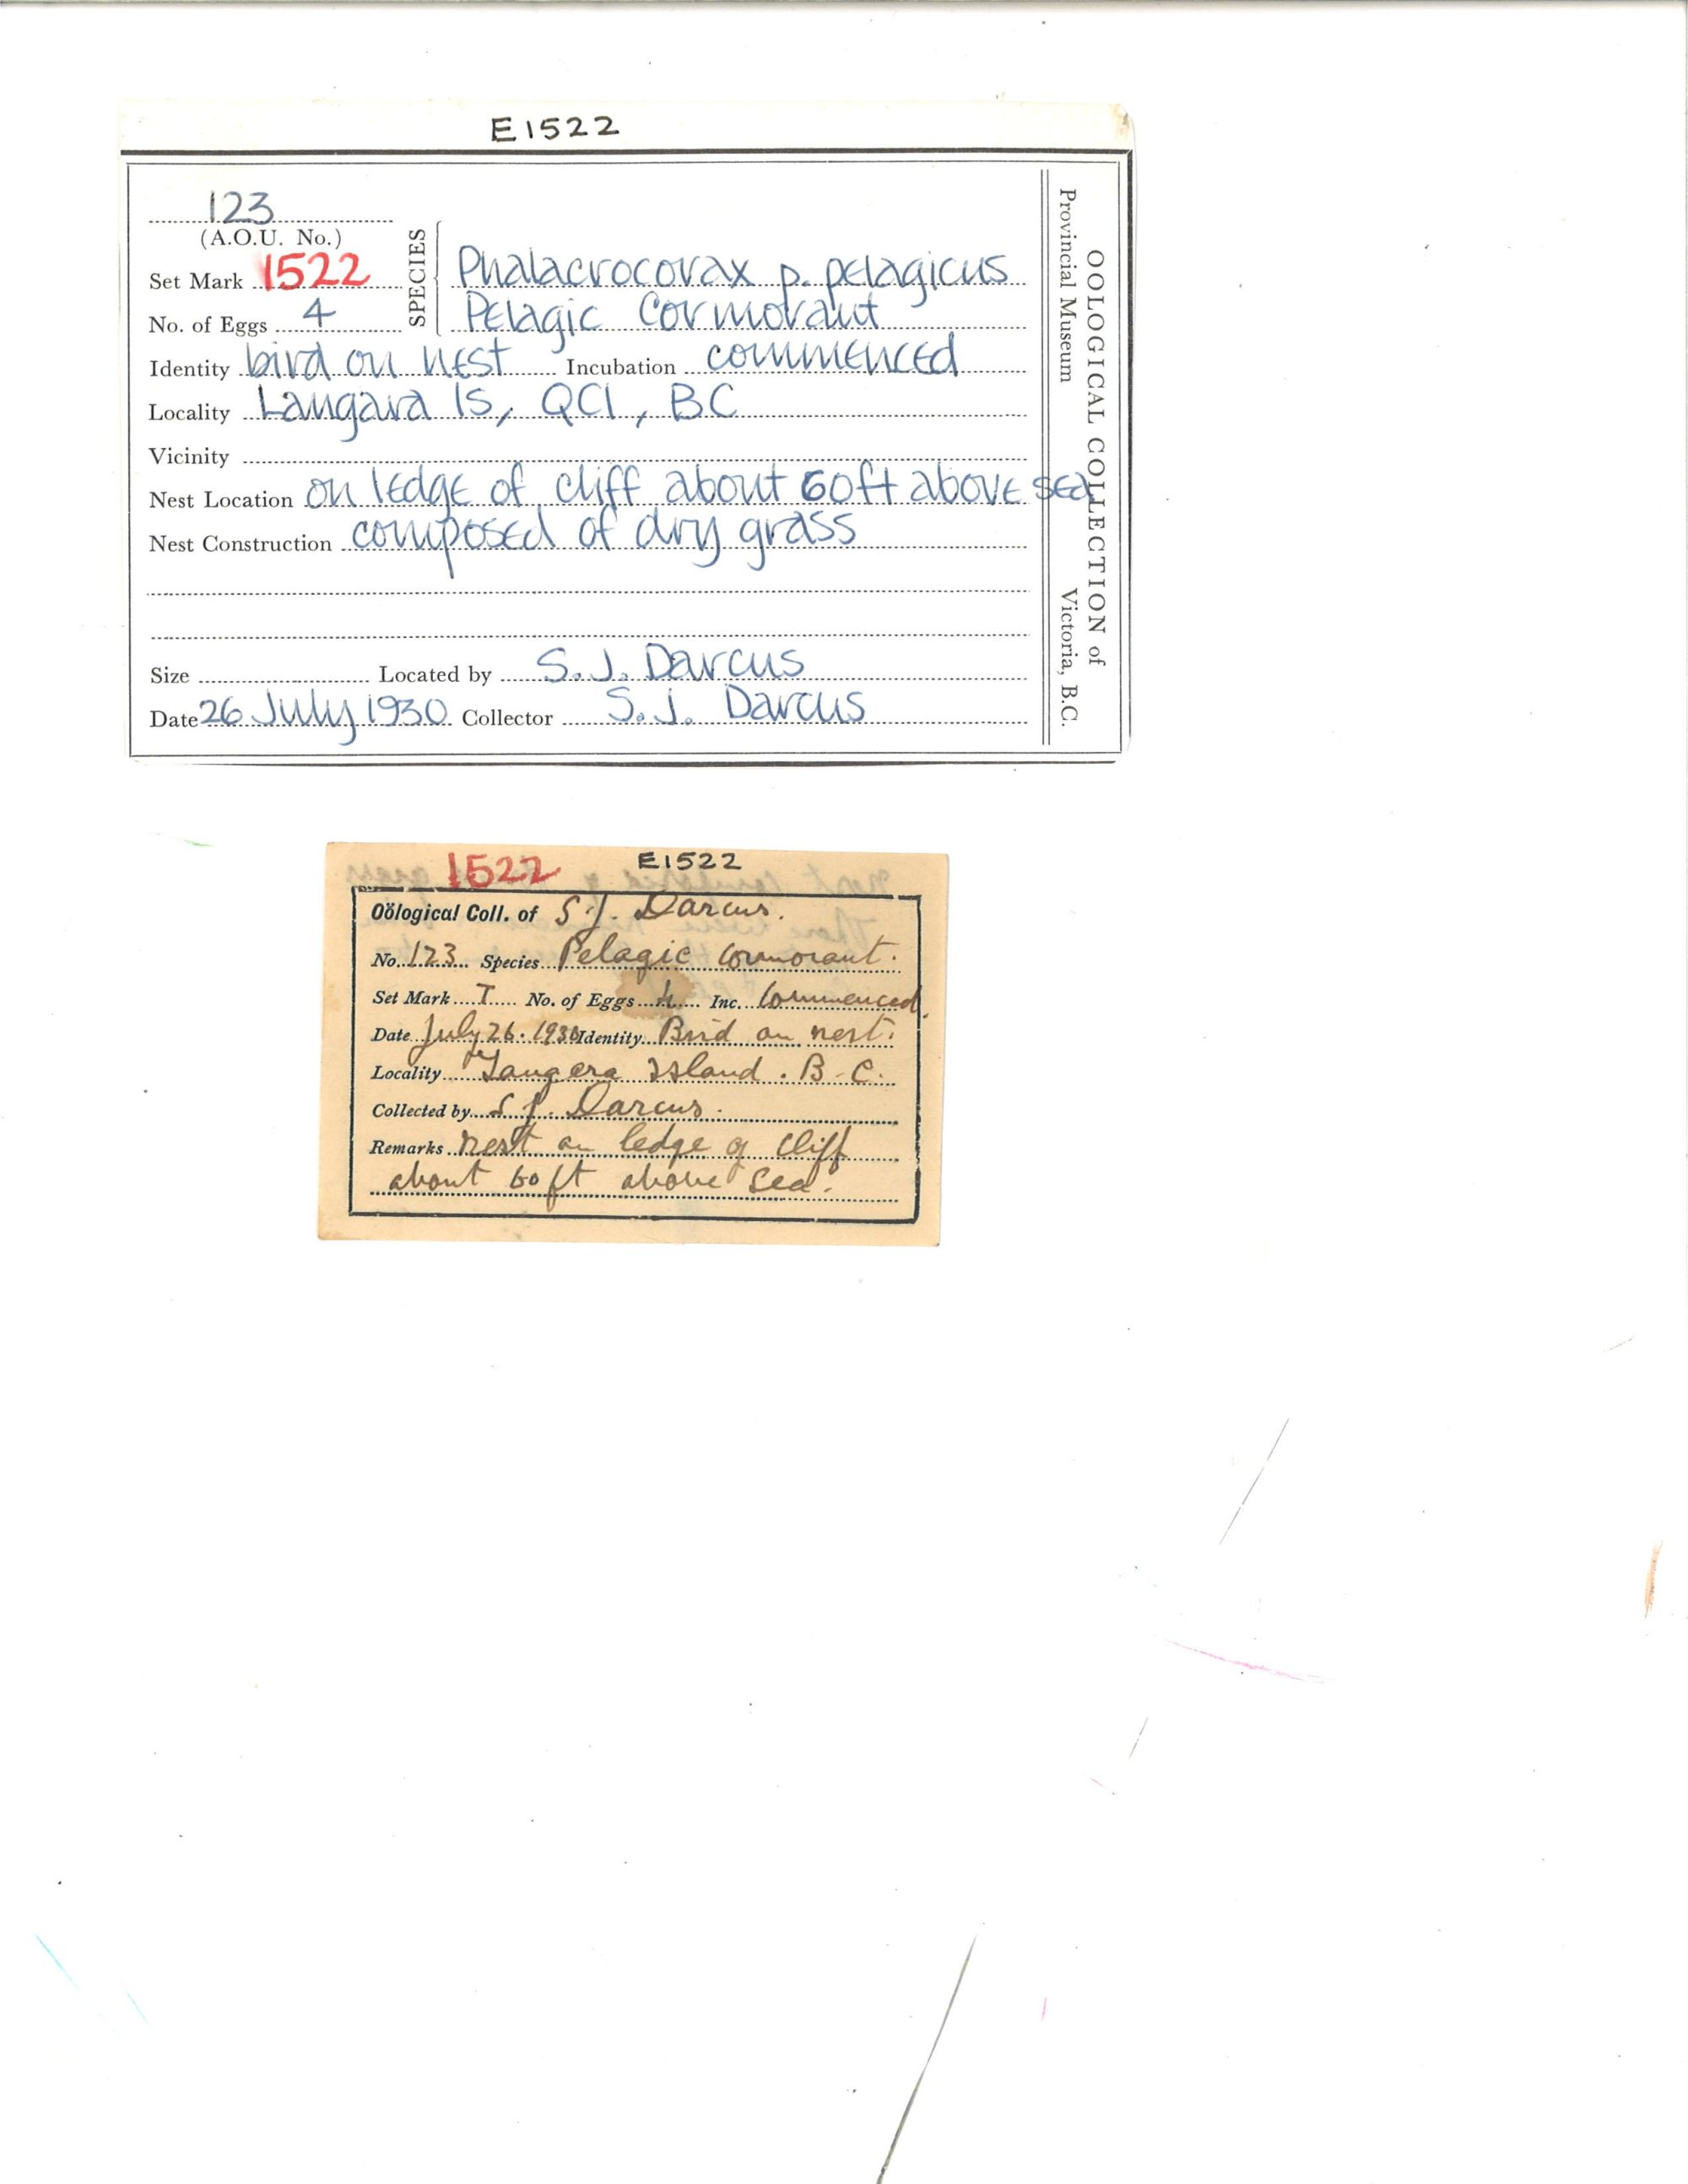 E1522
123
(A.O.U. No.)
Set Mark 1522
No. of Eggs 4
SPECIES
Phalacrocorax p. pelagicus
Pelagic Cormorant
Identity bird on nest Incubation commenced
Locality Langara Is, QCI, BC
Vicinity
Nest Location on ledge of cliff about 60ft above sea
Nest Construction composed of dry grass
Size Located by S.J. Darcus
Date 26 July 1930 Collector S.J. Darcus
OOLOGICAL COLLECTION of
Provincial Museum Victoria, B.C.
1522 E1522
Oölogical Coll. of S.J. Darcus.
No. 123 Species Pelagic Cormorant.
Set Mark T No. of Eggs 4 Inc. Commenced.
Date July 26. 1930 Identity Bird on nest.
Locality Langara Island. B.C.
Collected by S.J. Darcus.
Remarks Nest on ledge of cliff
about 60 ft above Sea.